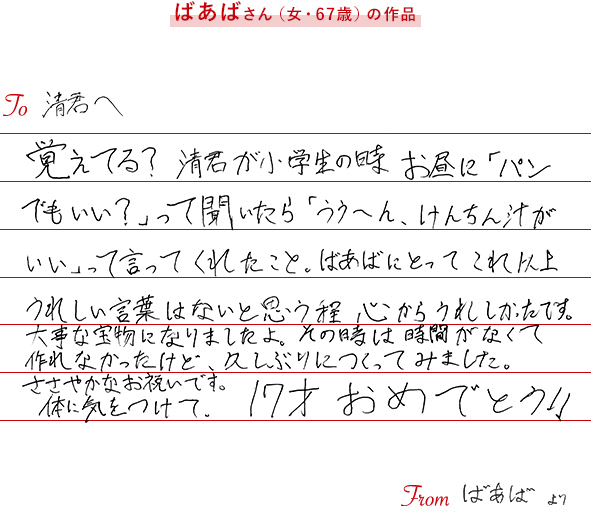 ばあばさん（女・67歳）の作品
To 清君へ
覚えてる？ 清君が小学生の時 お昼に「パン
でもいい？」って聞いたら「ううーん、けんちん汁が
いい」って言ってくれたこと。ばあばにとってこれ以上
うれしい言葉はないと思う程 心からうれしかったです。
大事な宝物になりましたよ。その時は時間がなくて
作れなかったけど、久しぶりにつくってみました。
ささやかなお祝いです。
体に気をつけて。 17才 おめでとう!!
From ばあば より